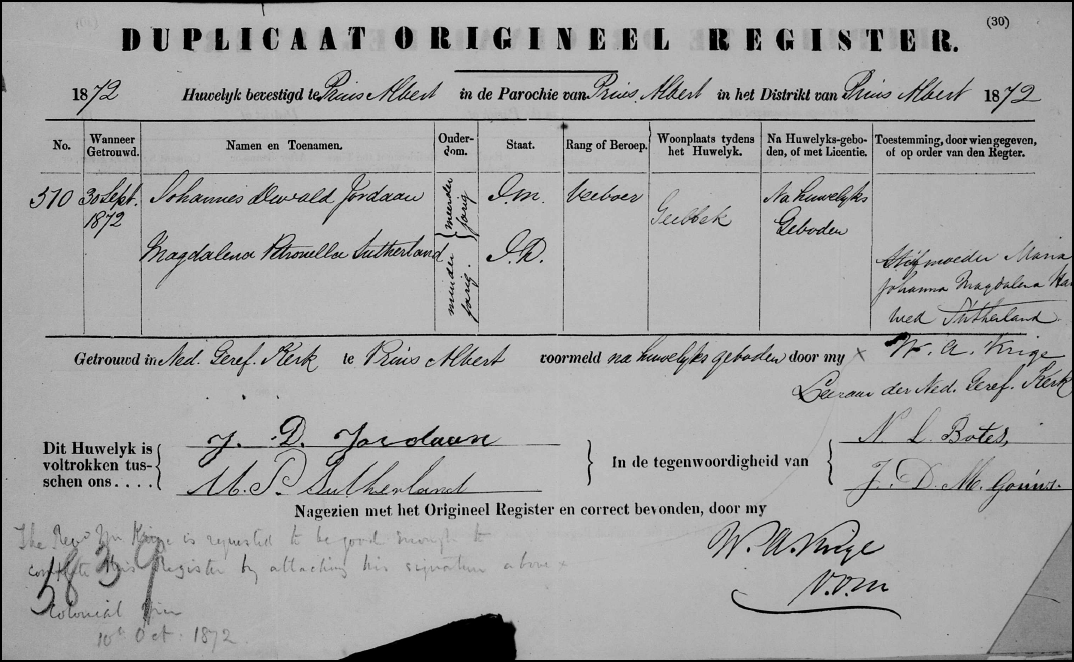 (30)
DUPLICAAT ORIGINEEL REGISTER.
1872 Huwelyk bevestigd te Prins Albert in de Parochie van Prins Albert in het Distrikt van Prins Albert 1872
No. Wanneer Getrouwd. Namen en Toenamen. Ouderdom. Staat. Rang of Beroep. Woonplaats tydens het Huwelyk. Na Huwelyks-geboden, of met Licentie. Toestemming, door wien gegeven, of op order van den Regter.
510 30 Sept. 1872 Johannes Dewald Jordaan meerder jarig J.M. Veeboer Na huwelyks Geboden
Magdalena Petronella Sutherland minder jarig. J.D.
Stiefmoeder Maria
Johanna Magdalena
wed Sutherland
Getrouwd in Ned. Geref. Kerk te Prins Albert voormeld na huwelyks geboden door my x W. A. Krige
Leeraar der Ned. Geref. Kerk
Dit Huwelyk is voltrokken tusschen ons....
J. D. Jordaan
M. P. Sutherland
In de tegenwoordigheid van
N. L. Botes,
J. D. M. Gouws.
Nagezien met het Origineel Register en correct bevonden, door my
W. A. Krige
V.D.M
The Revd Mr Krige is requested to be good enough to
complete this Register by attaching his signature above x
5839
Colonial
10th Oct. 1872.